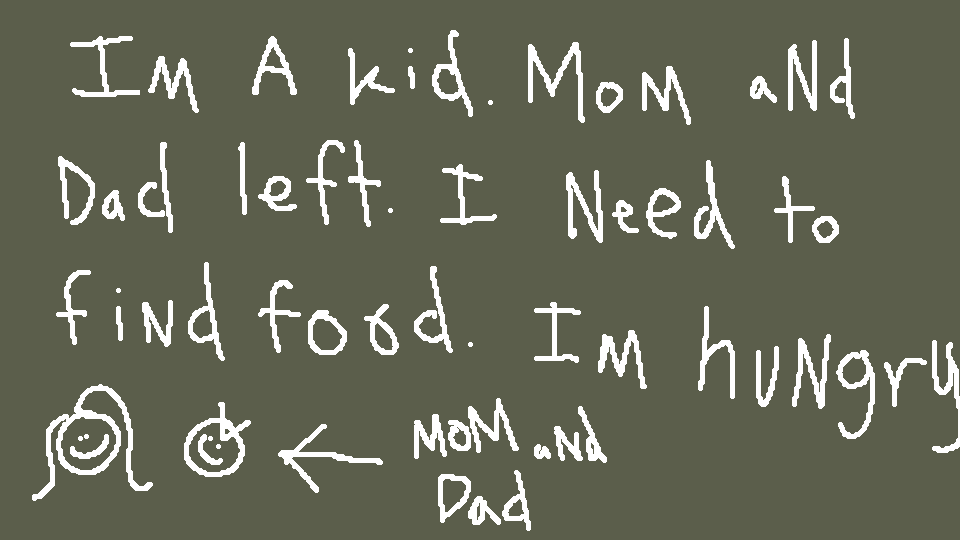 IM A kid. MoM aNd
Dad left. I Need to
fiNd food. IM huNgry
MOM aNd
Dad